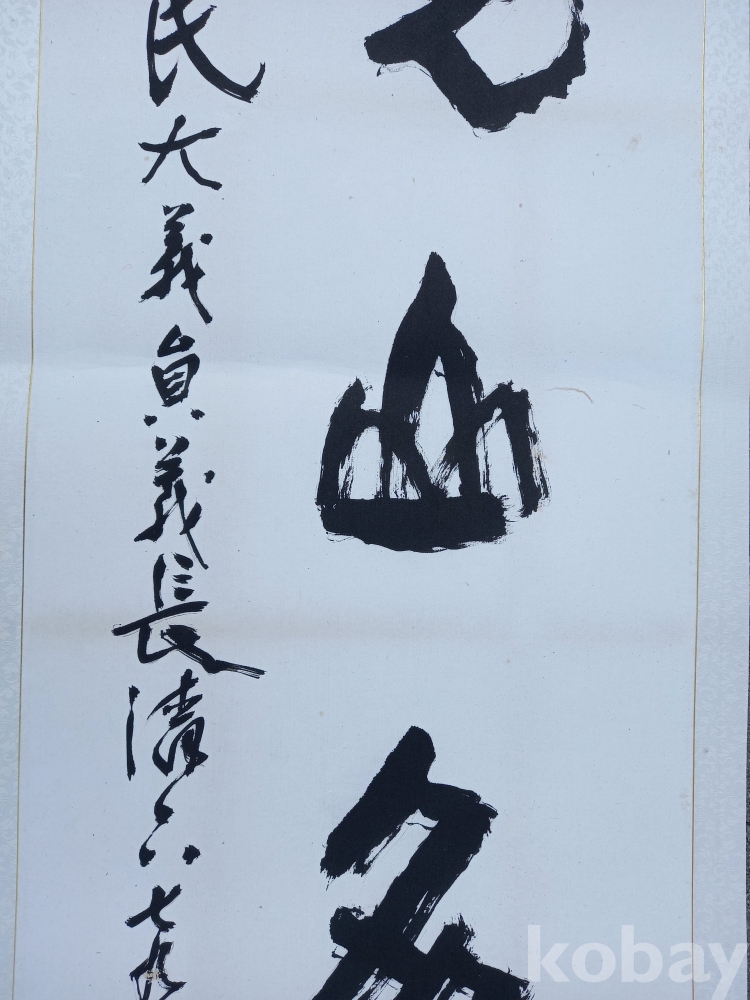 山
民大義貞義長清六七九
kobay